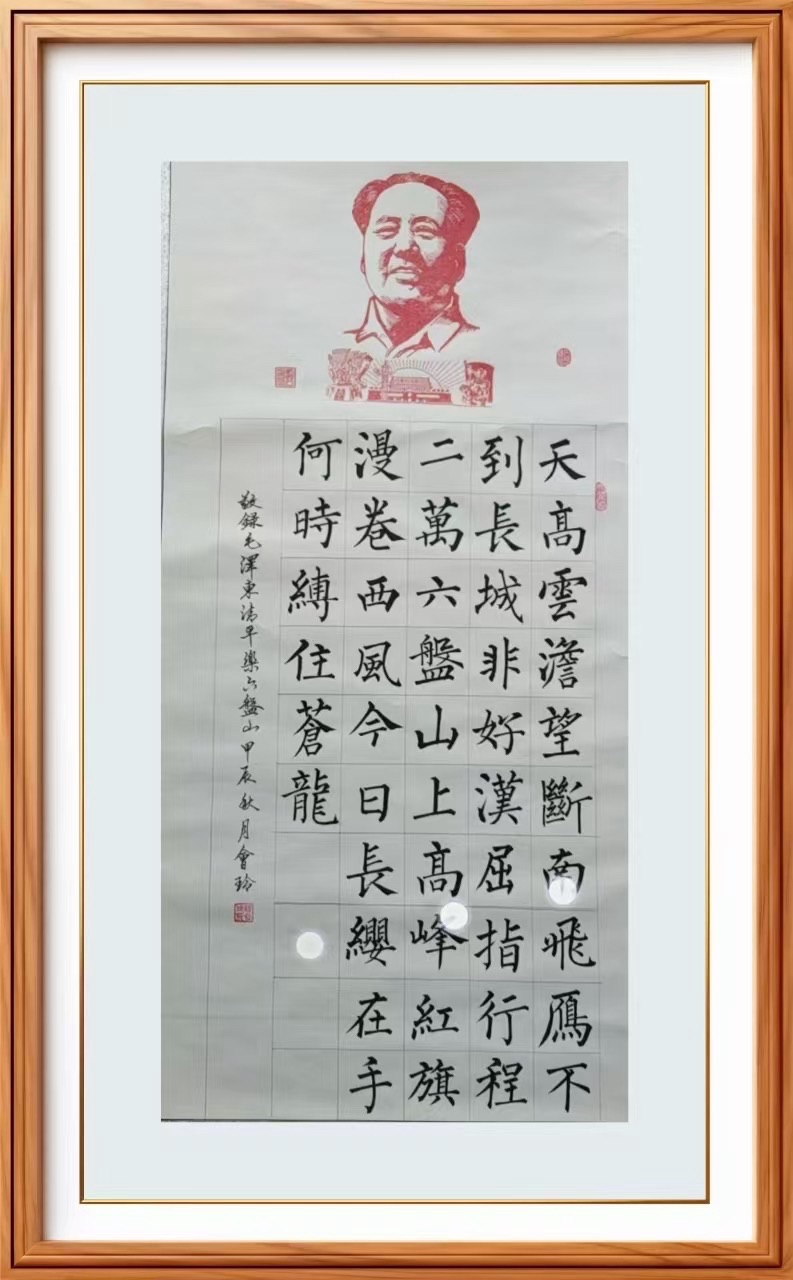 天高雲澹望斷南飛鴈不
到長城非好漢屈指行程
二萬六盤山上高峰紅旗
漫卷西風今日長纓在手
何時縛住蒼龍
敬録毛澤東清平樂六盤山甲辰秋月會玲